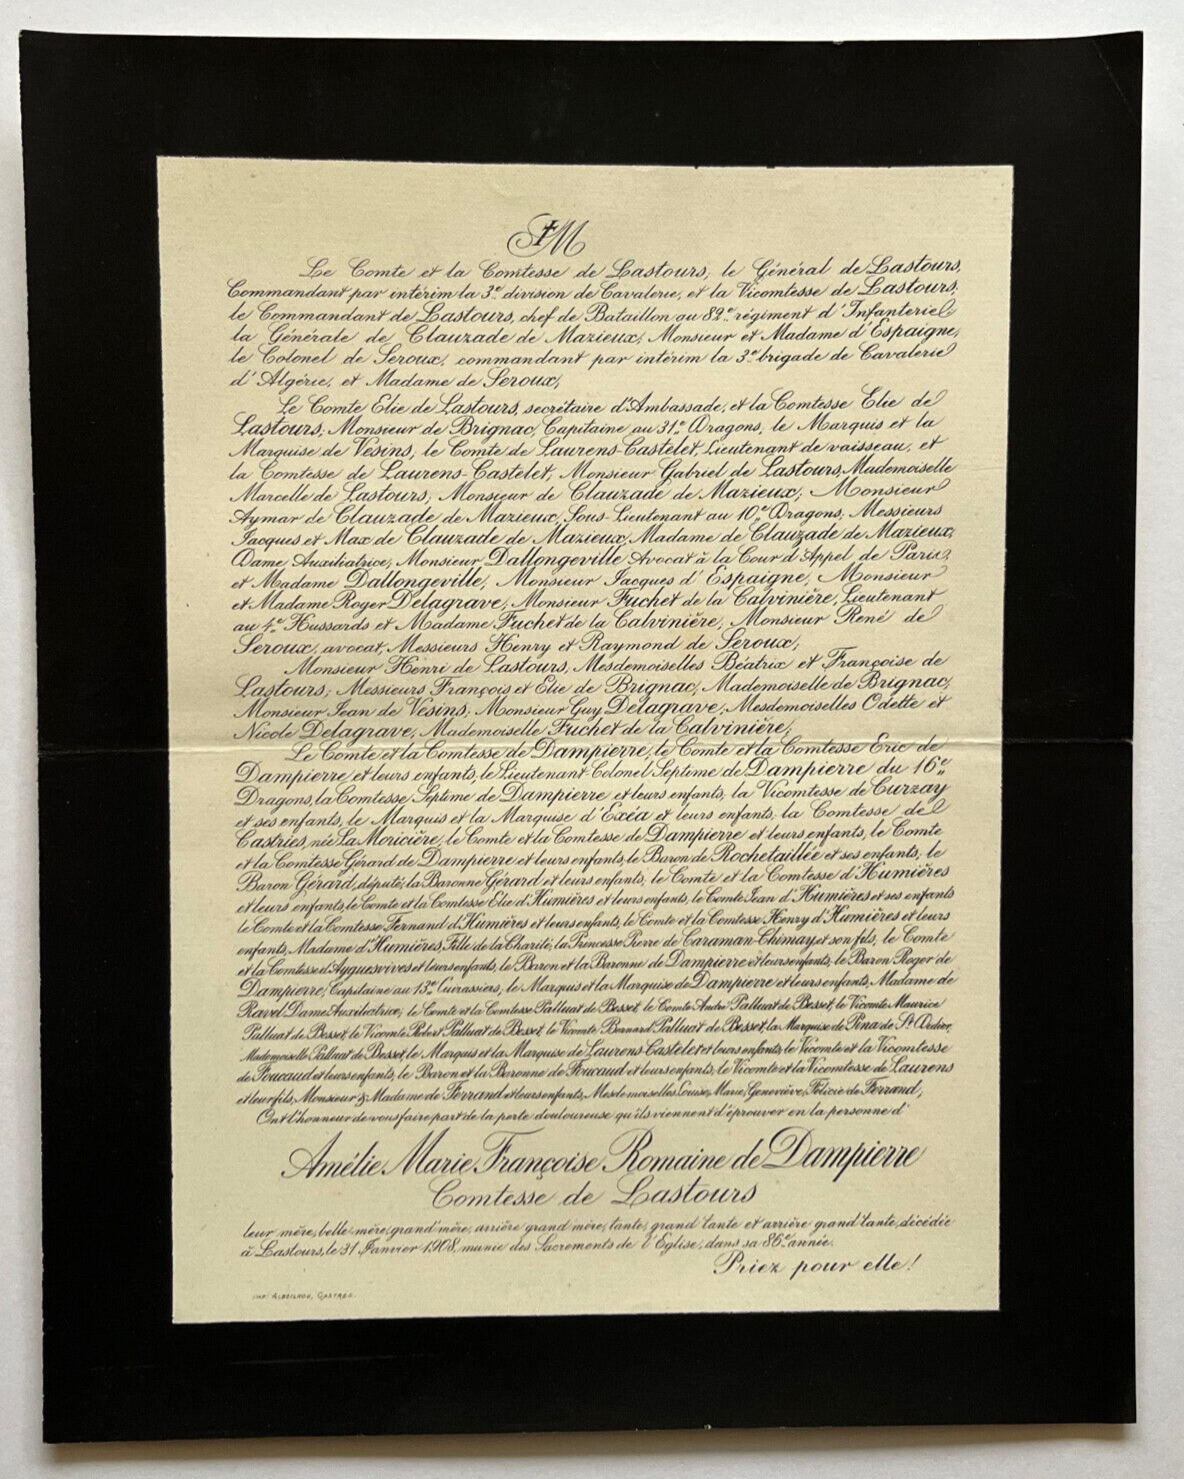 M
Le Comte et la Comtesse de Lastours, le Général de Lastours,
Commandant par intérim la 3e division de Cavalerie, et la Vicomtesse de Lastours,
le Commandant de Lastours, chef de Bataillon au 82e régiment d'Infanterie
la Générale de Clauzade de Mazieux, Monsieur et Madame d'Espaigne,
le Colonel de Seroux, commandant par intérim la 3e brigade de Cavalerie
d'Algérie, et Madame de Seroux,
Le Comte Elie de Lastours, secrétaire d'Ambassade, et la Comtesse Elie de
Lastours, Monsieur de Brignac, Capitaine au 31e Dragons, le Marquis et la
Marquise de Vesins, le Comte de Laurens-Castelet, Lieutenant de vaisseau, et
la Comtesse de Laurens-Castelet, Monsieur Gabriel de Lastours, Mademoiselle
Marcelle de Lastours, Monsieur de Clauzade de Mazieux, Monsieur
Aymar de Clauzade de Mazieux, Sous-Lieutenant au 10e Dragons, Messieurs
Jacques et Max de Clauzade de Mazieux, Madame de Clauzade de Mazieux,
Dame Auxiliatrice, Monsieur Dallongeville Avocat à la Cour d'Appel de Paris
et Madame Dallongeville, Monsieur Jacques d'Espaigne, Monsieur
et Madame Roger Delagrave, Monsieur Fuchet de la Calvinière, Lieutenant
au 4e Hussards et Madame Fuchet de la Calvinière, Monsieur René de
Seroux, avocat, Messieurs Henry et Raymond de Seroux,
Monsieur Henri de Lastours, Mesdemoiselles Béatrix et Françoise de
Lastours, Messieurs François et Elie de Brignac, Mademoiselle de Brignac,
Monsieur Jean de Vesins, Monsieur Guy Delagrave, Mesdemoiselles Odette et
Nicole Delagrave, Mademoiselle Fuchet de la Calvinière,
Le Comte et la Comtesse de Dampierre, le Comte et la Comtesse Eric de
Dampierre et leurs enfants, le Lieutenant-Colonel Septime de Dampierre du 16e
Dragons, la Comtesse Septime de Dampierre et leurs enfants, la Vicomtesse de Curzay
et ses enfants, le Marquis et la Marquise d'Exéa et leurs enfants, la Comtesse de
Castries, née La Moricière, le Comte et la Comtesse de Dampierre et leurs enfants, le Comte
et la Comtesse Gérard de Dampierre et leurs enfants, le Baron de Rochetaillée et ses enfants, le
Baron Gérard, député, la Baronne Gérard et leurs enfants, le Comte et la Comtesse d'Humières
et leurs enfants, le Comte et la Comtesse Elie d'Humières et leurs enfants, le Comte Jean d'Humières et ses enfants
le Comte et la Comtesse Fernand d'Humières et leurs enfants, le Comte et la Comtesse Henry d'Humières et leurs
enfants, Madame d'Humières, Fille de la Charité, la Princesse Pierre de Caraman-Chimay et son fils, le Comte
et la Comtesse d'Ayguesvives et leurs enfants, le Baron et la Baronne de Dampierre et leurs enfants, le Baron Roger de
Dampierre, Capitaine au 13e Cuirassiers, le Marquis et la Marquise de Dampierre et leurs enfants, Madame de
Ravel Dame Auxiliatrice, le Comte et la Comtesse Palluat de Besset, le Comte André Palluat de Besset, le Vicomte Maurice
Palluat de Besset, le Vicomte Robert Palluat de Besset, le Vicomte Bernard Palluat de Besset, la Marquise de Pina de St Didier,
Mademoiselle Palluat de Besset, le Marquis et la Marquise de Laurens-Castelet et leurs enfants, le Vicomte et la Vicomtesse
de Foucaud et leurs enfants, le Baron et la Baronne de Foucaud et leurs enfants, le Vicomte et la Vicomtesse de Laurens
et leur fils, Monsieur & Madame de Ferrand et leurs enfants, Mesdemoiselles Louise, Marie, Geneviève, Félicie de Ferrand,
Ont l'honneur de vous faire part de la perte douloureuse qu'ils viennent d'éprouver en la personne d'
Amélie Marie Françoise Romaine de Dampierre
Comtesse de Lastours
leur mère, belle-mère, grand'mère, arrière grand'mère, tante, grand'tante et arrière grand'tante, décédée
à Lastours, le 31 Janvier 1908, munie des Sacrements de l'Eglise, dans sa 86e année.
Priez pour elle!
Castres.